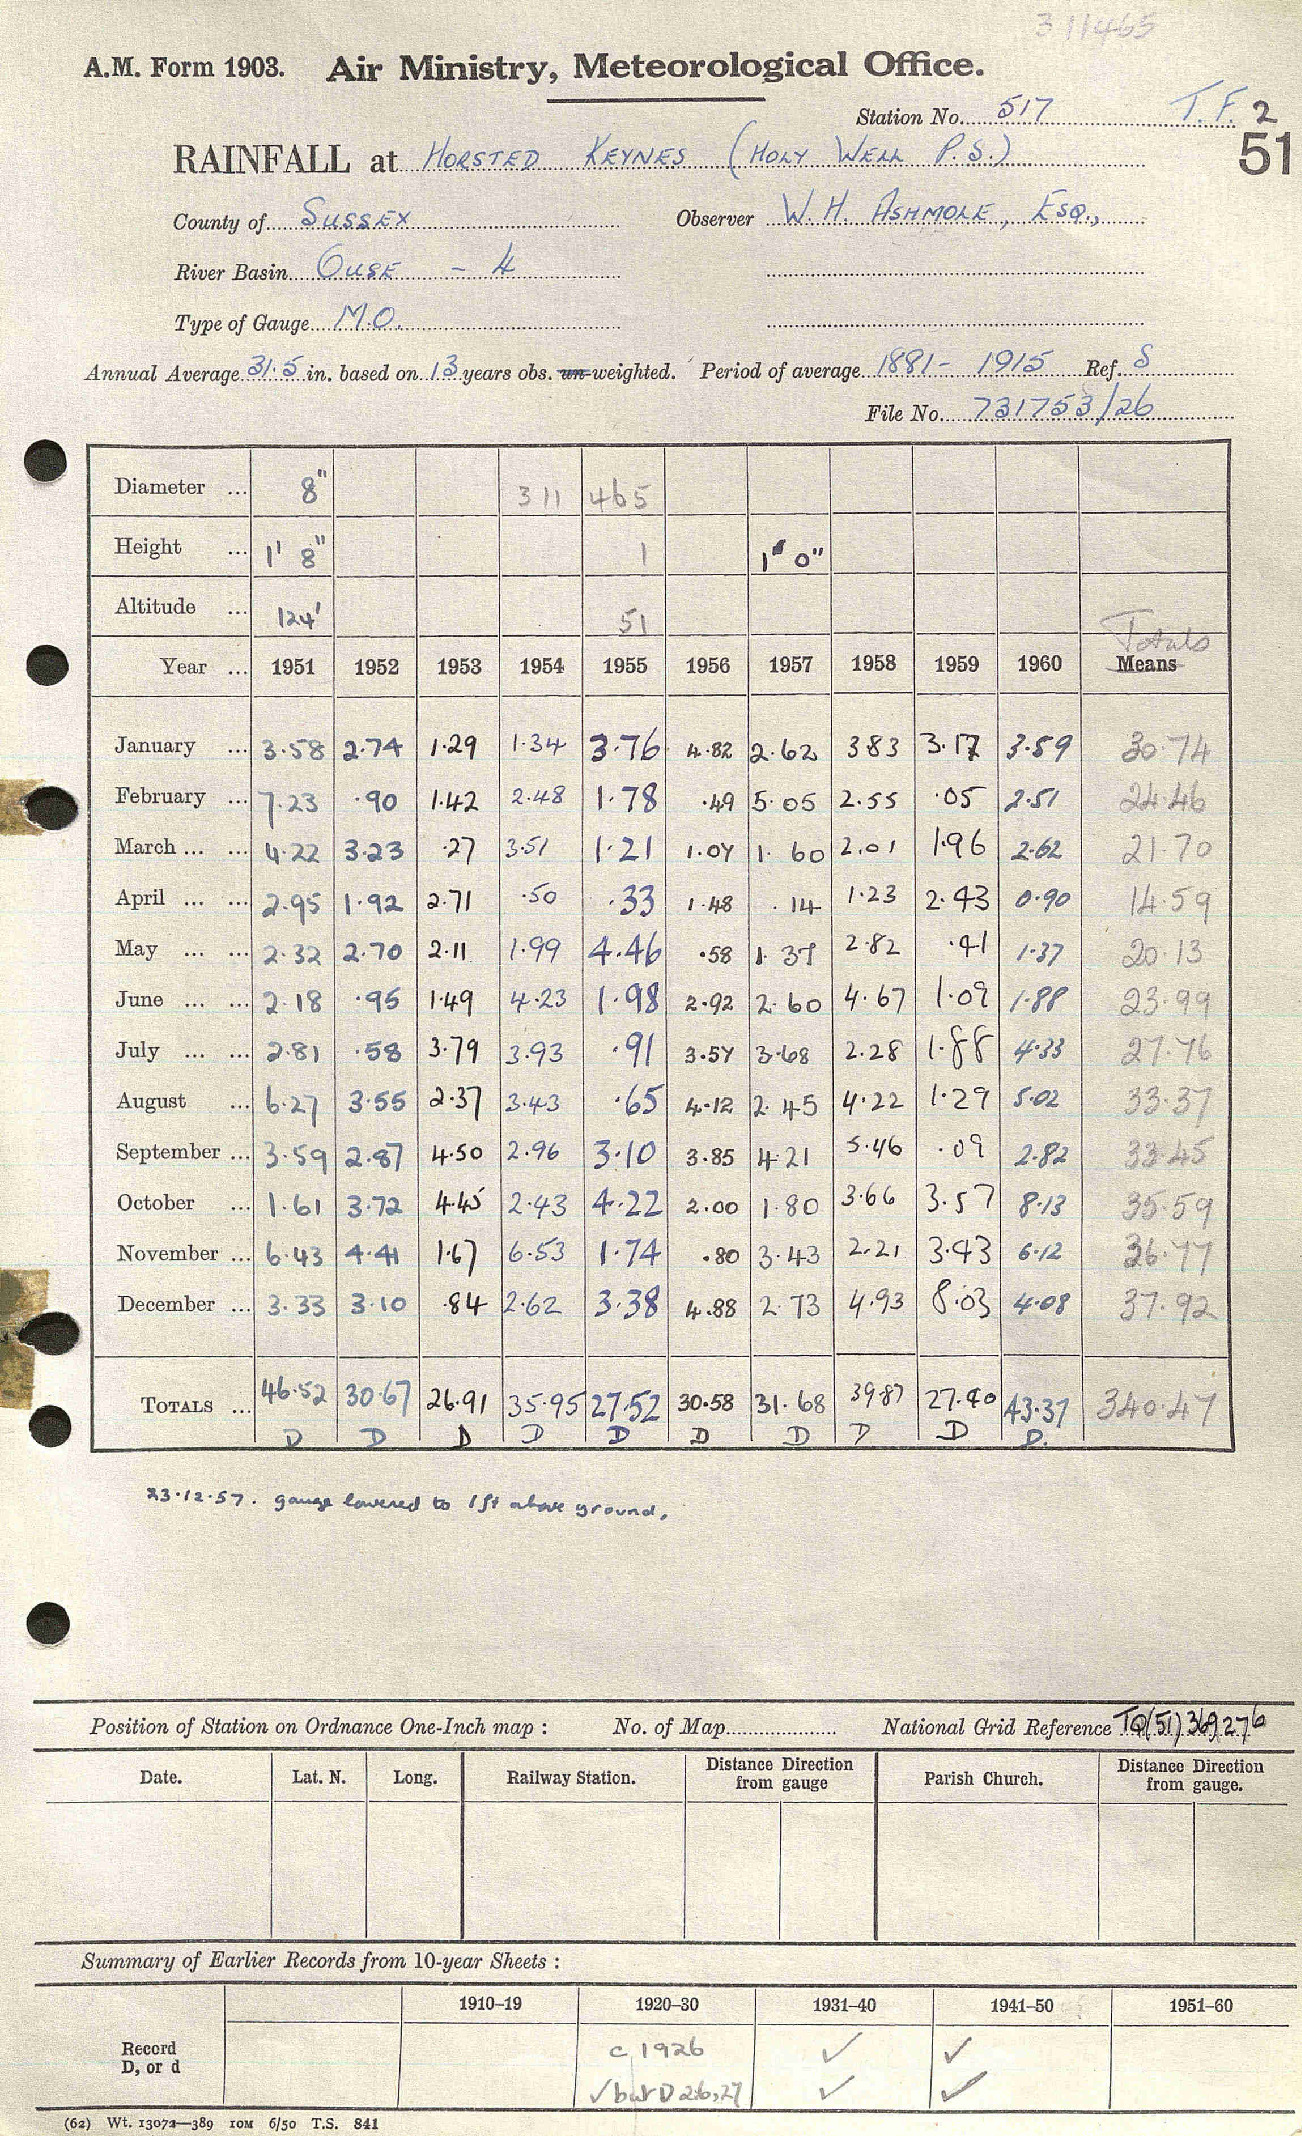 311465
A.M. Form 1903. Air Ministry, Meteorological Office.
Station No. 517 T.F. 2
51
RAINFALL at HORSTED KEYNES (HOLY WELL P.S.)
County of SUSSEX Observer W.H. ASHMOLE, ESQ.,
River Basin OUSE - 4
Type of Gauge M.O.
Annual Average 31.5 in. based on 13 years obs. un-weighted. Period of average 1881 - 1915 Ref. S
File No. 731753/26
Diameter ... 8" 311 465
Height ... 1' 8" 1 1' 0"
Altitude ... 124' 51
Totals
Year ... 1951 1952 1953 1954 1955 1956 1957 1958 1959 1960 Means
January ... 3.58 2.74 1.29 1.34 3.76 4.82 2.62 3.83 3.17 3.59 30.74
February ... 7.23 .90 1.42 2.48 1.78 .49 5.05 2.55 .05 2.51 24.46
March ... ... 4.22 3.23 .27 3.51 1.21 1.07 1.60 2.01 1.96 2.62 21.70
April ... ... 2.95 1.92 2.71 .50 .33 1.48 .14 1.23 2.43 0.90 14.59
May ... ... 2.32 2.70 2.11 1.99 4.46 .58 1.37 2.82 .41 1.37 20.13
June ... ... 2.18 .95 1.49 4.23 1.98 2.92 2.60 4.67 1.09 1.88 23.99
July ... ... 2.81 .58 3.79 3.93 .91 3.57 3.68 2.28 1.88 4.33 27.76
August ... 6.27 3.55 2.37 3.43 .65 4.12 2.45 4.22 1.29 5.02 33.37
September ... 3.59 2.87 4.50 2.96 3.10 3.85 4.21 5.46 .09 2.82 33.45
October ... 1.61 3.72 4.45 2.43 4.22 2.00 1.80 3.66 3.57 8.13 35.59
November ... 6.43 4.41 1.67 6.53 1.74 .80 3.43 2.21 3.43 6.12 36.77
December ... 3.33 3.10 .84 2.62 3.38 4.88 2.73 4.93 8.03 4.08 37.92
TOTALS ... 46.52 30.67 26.91 35.95 27.52 30.58 31.68 39.87 27.40 43.37 340.47
D D D D D D D D D D.
23.12.57. gauge lowered to 1ft above ground.
Position of Station on Ordnance One-Inch map : No. of Map National Grid Reference TQ(51)369276
Date. Lat. N. Long. Railway Station. Distance Direction from gauge Parish Church. Distance Direction from gauge.
Summary of Earlier Records from 10-year Sheets :
1910–19 1920–30 1931–40 1941–50 1951–60
Record c 1926 ✓ ✓
D, or d ✓ but D 26,27 ✓ ✓
(62) Wt. 13072—389 10M 6/50 T.S. 841